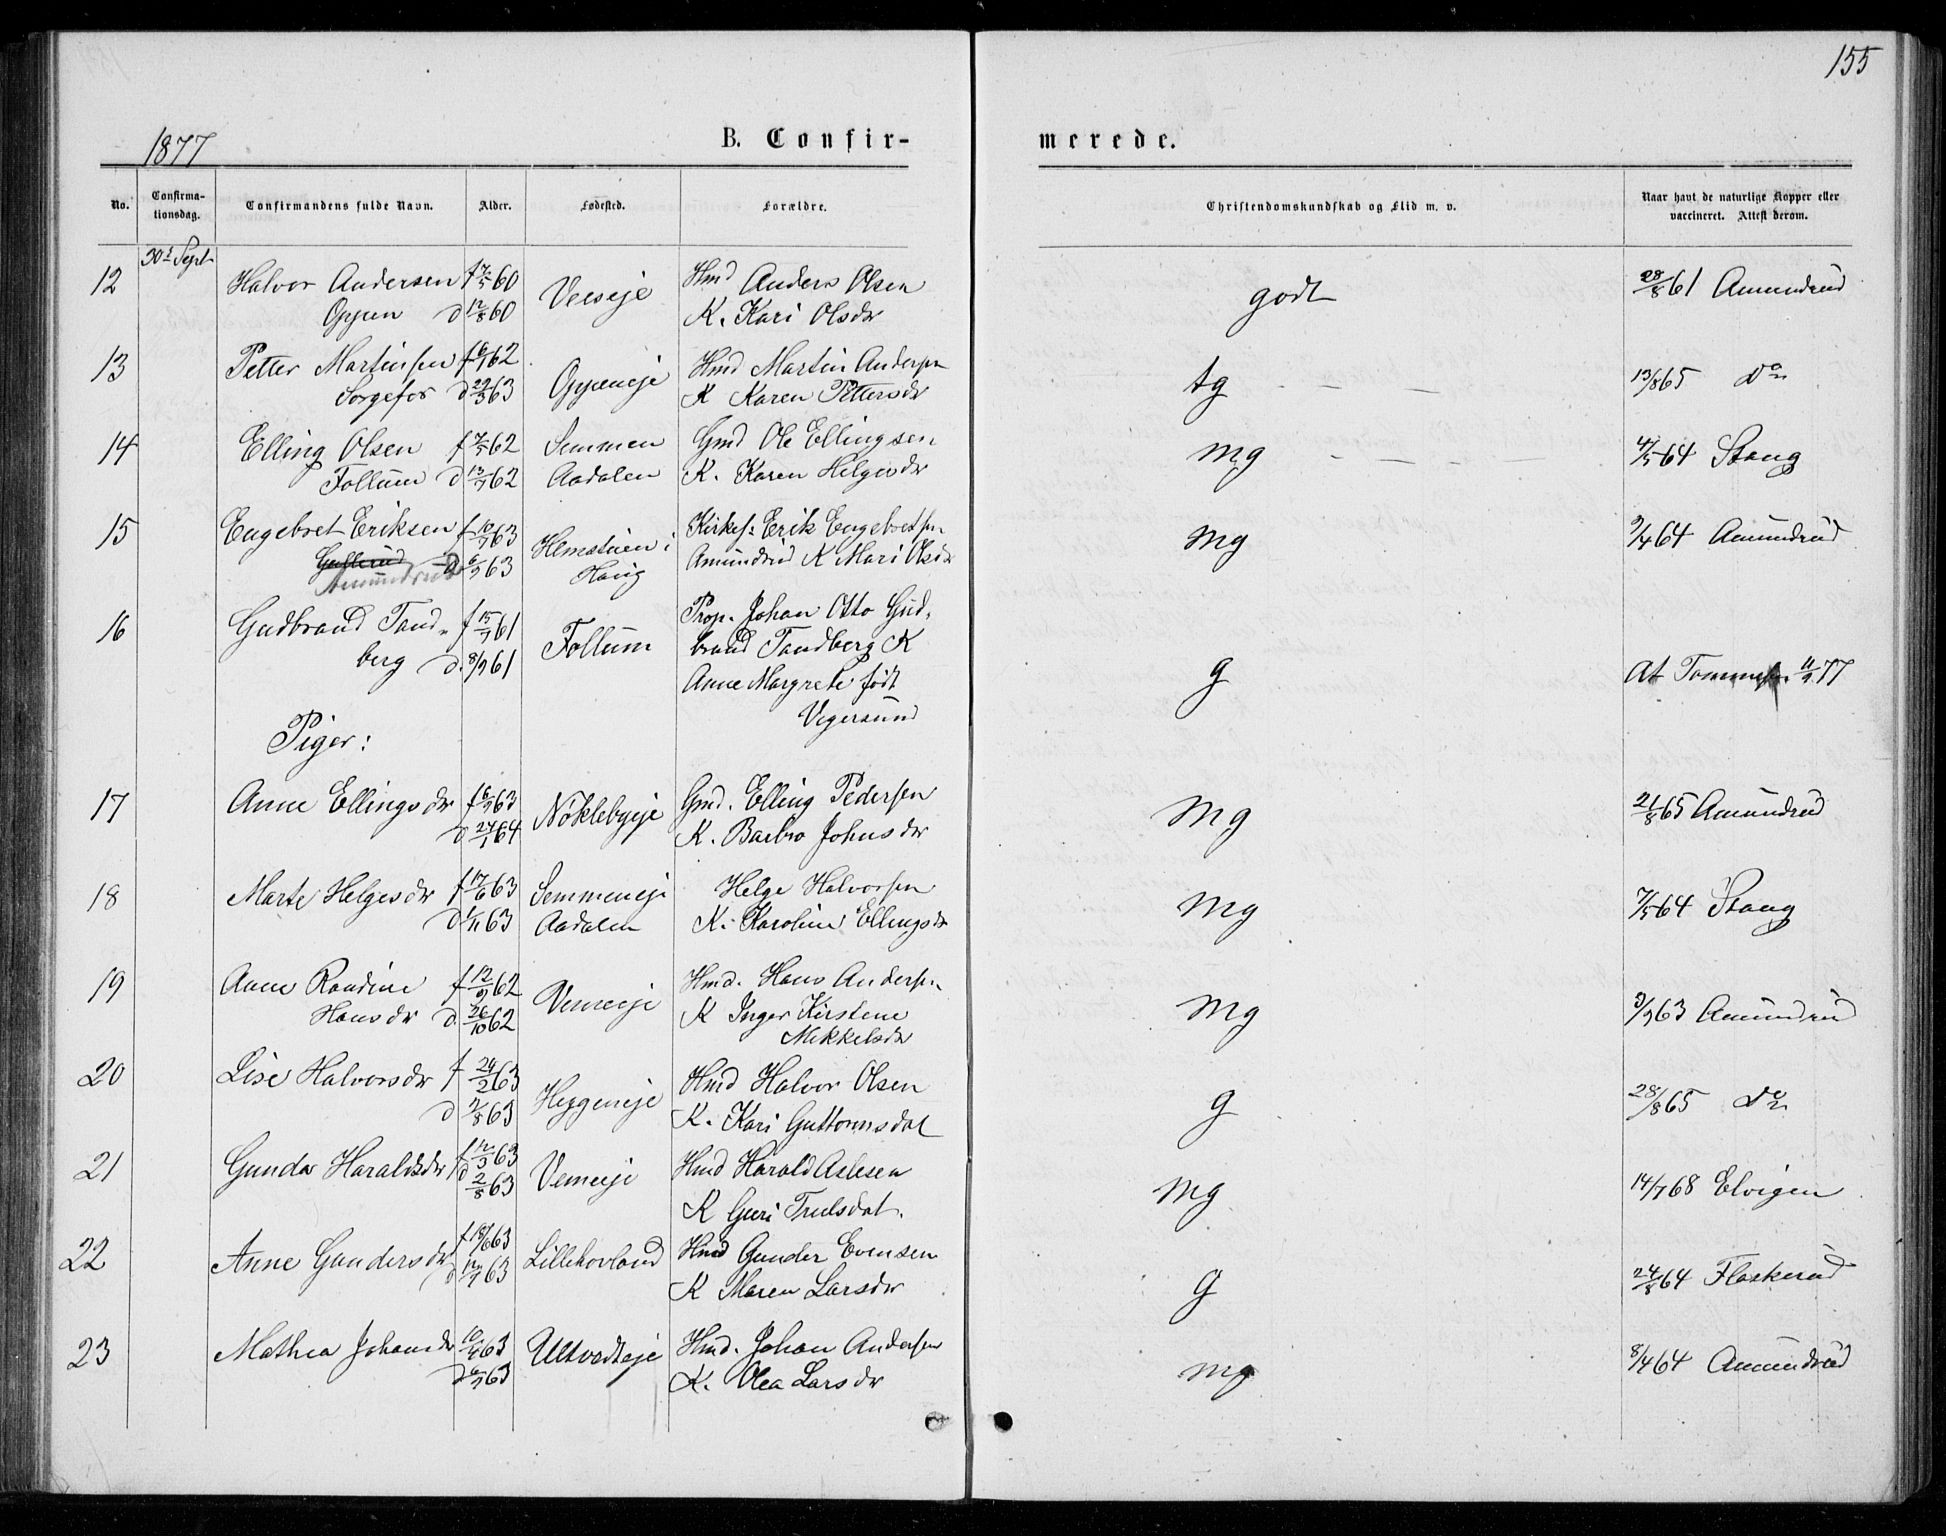 155
1877
B. Confir-
merede.
No.
Confirma-
tionsdag.
Confirmandens fulde Navn.
Alder.
Fødested.
Forældre.
Christendomskundskab og Flid m. v.
Naar havt de naturlige Kopper eller
vaccineret. Attest derom.
30t Sept
12 Halvor Andersen f 7/5 60 Hmd Anders Olsen godt 28/8 61 Amundrud
Oppen d 12/8 60 K. Kari Olsdr
13 Petter Martinsen f 6/1 62 Oppeneje Hmd Martin Andersn tg - - - 13/8 65 Do
Sorgefos d 29/3 63 K Karen Pettersdr
14 Elling Olsen f 7/5 62 Semmen Gmd Ole Ellingsen mg - - - 4/5 64 Stang
Follum d 13/7 62 Aadalen K. Karen Helgesdr
15 Engebret Eriksen f 10/7 63 i Kirkes: Erik Engebretsn mg 9/4 64 Amundrud
Amundrud d 6/9 63 Haug Amundrud K Mari Olsdr
16 Gudbrand Tand- f 15/7 61 Follum Prop. Johan Otto Gud-
berg d. 8/9 61 brand Tandberg K g At 11/9 77
Anne Margrete født
Vegersund
Piger:
17 Anne Ellingsdr f 16/9 63 Nøklebyeje Gmd. Elling Pedersen Mg 21/8 65 Amundrud
d 24/1 64 K. Barbro Johnsdr
18 Marte Helgesdr f 17/6 63 Semmeneje Helge Halvorsen Mg 7/5 64 Stang
d 1/11 63 Aadalen K. Karoline Ellingsdr
19 Anne Randine f 12/9 62 Vemeeje Hmd. Hans Andersn Mg 3/9 63 Amundrud
Hansdr d. 26/10 62 K Inger Kirstene
Mikkelsdr
20 Lise Halvorsdr f 24/2 63 Heggeneje Hmd Halvor Olsen g 28/8 65 Do
d 7/8 63 K. Kari Guttormsdat
21 Gunda Haraldsdr f 12/3 63 Vemeeje Hmd Harald Aslesen Mg 14/7 68 Elvigen
d 2/8 63 K Guri Trulsdat.
22 Anne Gundersdr f 18/6 63 Lillehovland Hmd Gunder Evensen g 24/8 64 Flaskerud
d 12/7 63 K Maren Larsdr
23 Mathea Johansdr 10/4 63 Ultvedteje Hmd. Johan Andersen Mg 8/4 64 Amundrud
d 6/7 63 K. Olea Larsdr